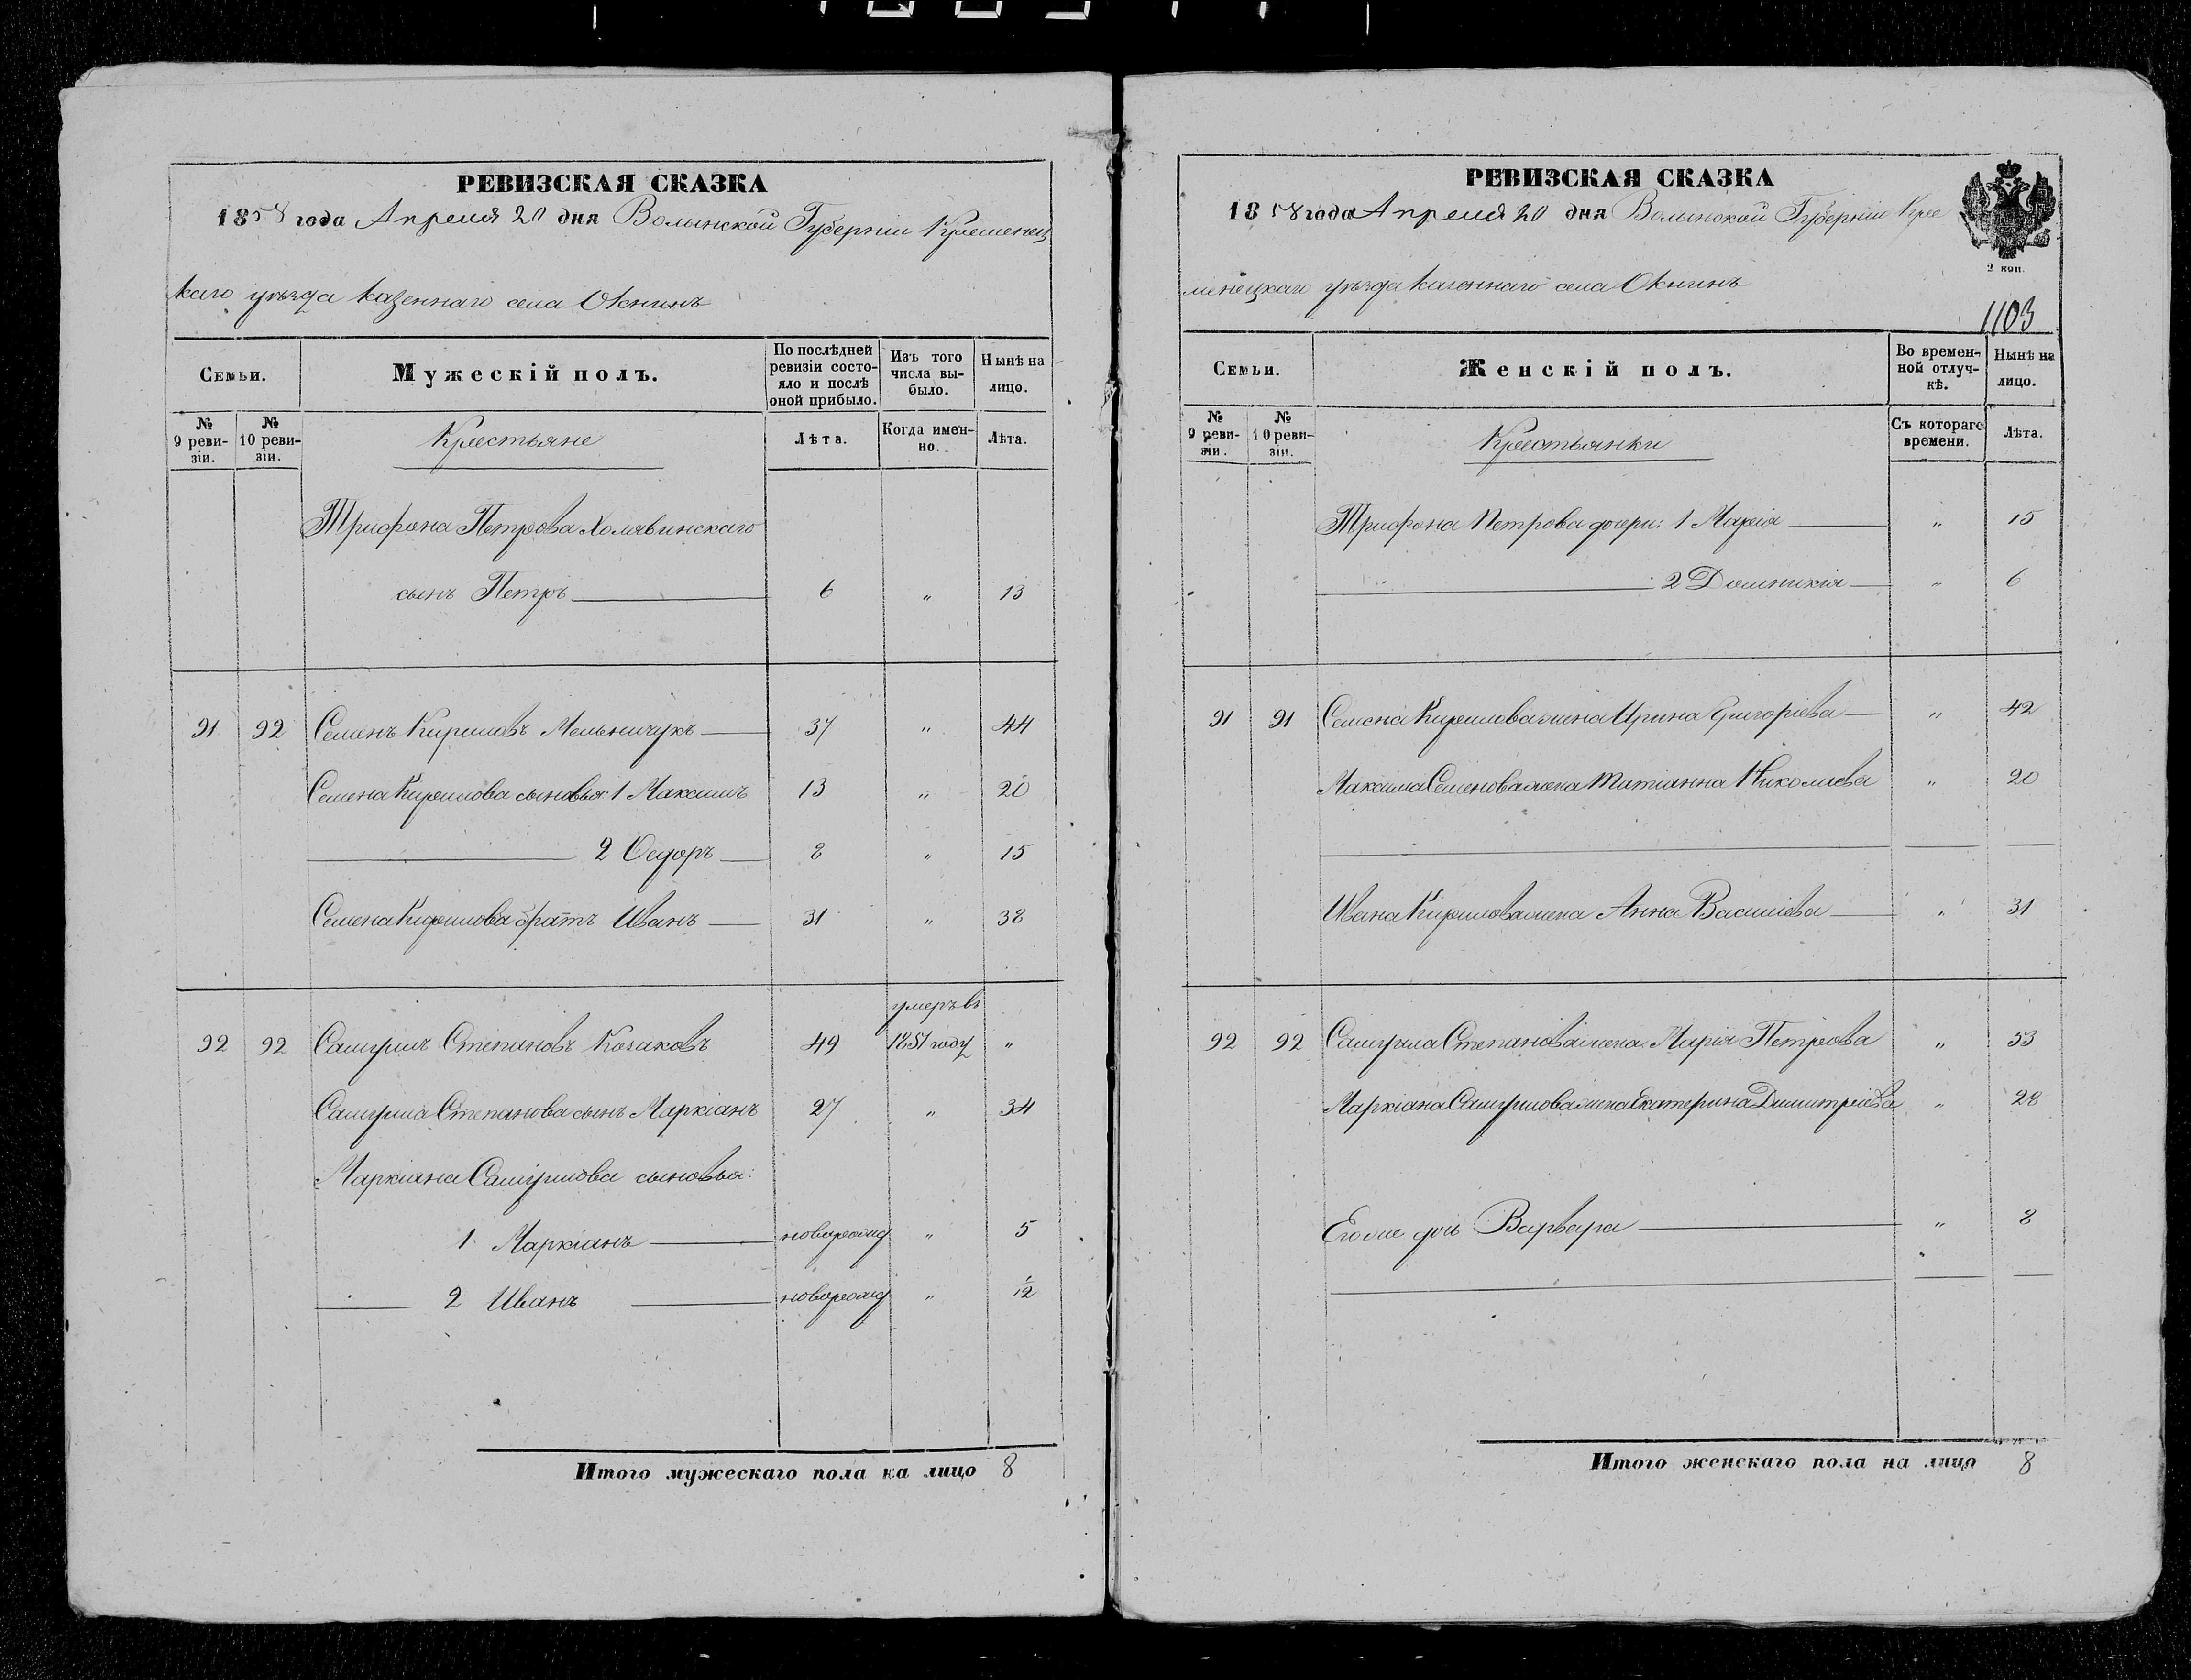 РЕВИЗСКАЯ СКАЗКА
1858 года Апреля 20 дня Волынской Губерніи Кременец
каго уѣзда казеннаго села Окнинъ
Семьи.
Мужескій полъ.
По послѣдней ревизіи состояло и послѣ оной прибыло.
Изъ того числа выбыло.
Нынѣ на лицо.
№ 9 ревизіи.
№ 10 ревизіи.
Крестьяне
Лѣта.
Когда именно.
Лѣта.
Трифона Петрова
сынъ Петръ 6 „ 13
91 92 Семенъ Кириловъ Мельничукъ 37 „ 44
Семена Кирилова сыновья: 1 Максимъ 13 „ 20
2 Ѳедоръ 8 „ 15
Семена Кирилова братъ Иванъ 31 „ 38
умеръ въ
92 92 Самуилъ Степановъ Козаковъ 49 1851 году „
Самуила Степанова сынъ Маркіанъ 27 „ 34
Маркіана Самуилова сыновья:
1 Маркіанъ новорожд „ 5
2 Иванъ новорожд „ 1/12
Итого мужескаго пола на лицо 8
РЕВИЗСКАЯ СКАЗКА
1858 года Апреля 20 дня Волынской Губерніи Кре
2 коп.
менецкаго уѣзда казеннаго села Окнинъ
1103
Семьи.
Женскій полъ.
Во временной отлучкѣ.
Нынѣ на лицо.
№ 9 ревизіи.
№ 10 ревизіи.
Крестьянки
Съ котораго времени.
Лѣта.
Трифона Петрова дочери: 1 Марія „ 15
2 Домникія „ 6
91 91 Семена Кирилова жена Ирина Григоріева „ 42
Максима Семенова жена Татіанна Николаева „ 20
Ивана Кирилова жена Анна Василіева „ 31
92 92 Самуила Степанова жена Марія Петрова „ 53
Маркіана Самуилова жена Екатерина Димитріева „ 28
Его же дочь Варвара „ 8
Итого женскаго пола на лицо 8